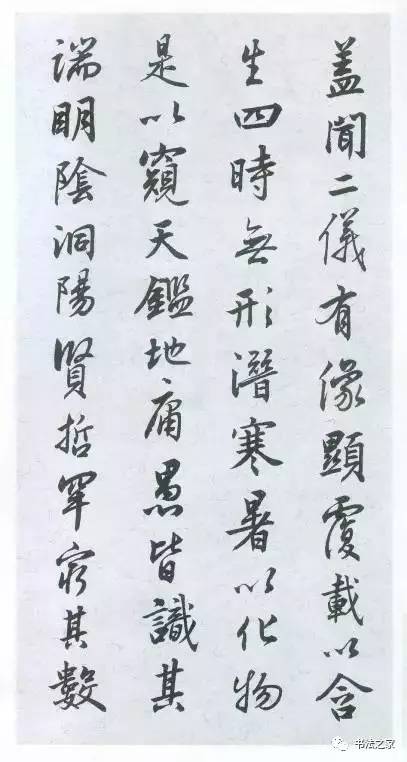 蓋聞二儀有像顯覆載以含
生四時無形潛寒暑以化物
是以窺天鑑地庸愚皆識其
端明陰洞陽賢哲罕窮其數
书法之家